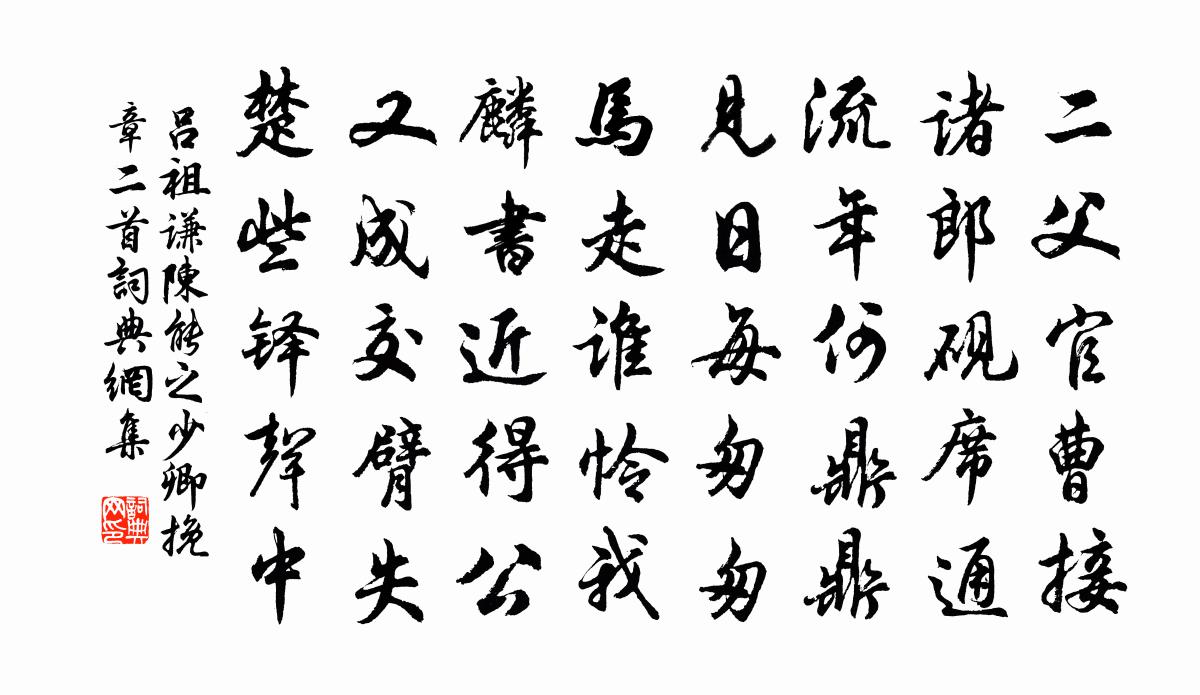 二父官曹接
诸郎砚席通
流年何鼎鼎
见日每匆匆
馬走谁怜我
麟書近得公
又成交臂失
楚些铎聲中
吕祖谦陳能之少卿挽
章二首詞典網集
詞典
网印